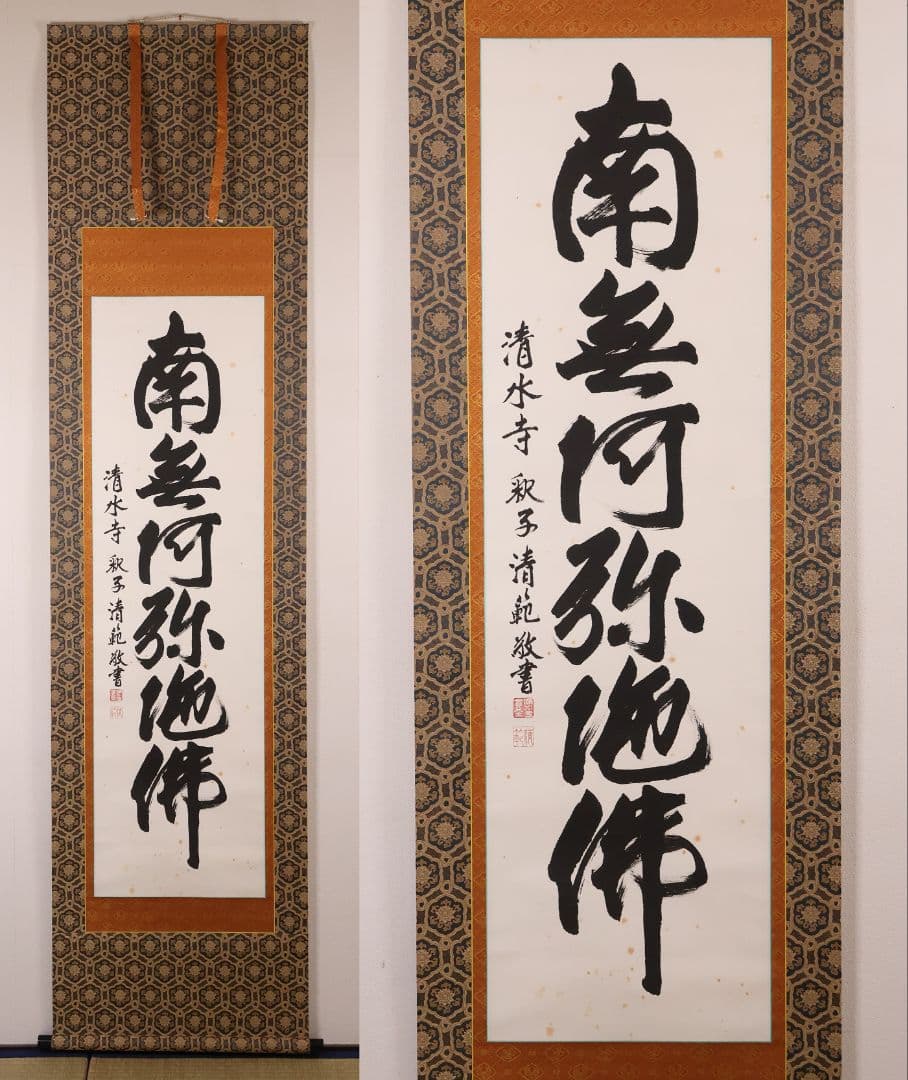 南無阿弥陀佛
清水寺 釈子清範敬書
南無阿弥陀佛
清水寺 釈子清範敬書